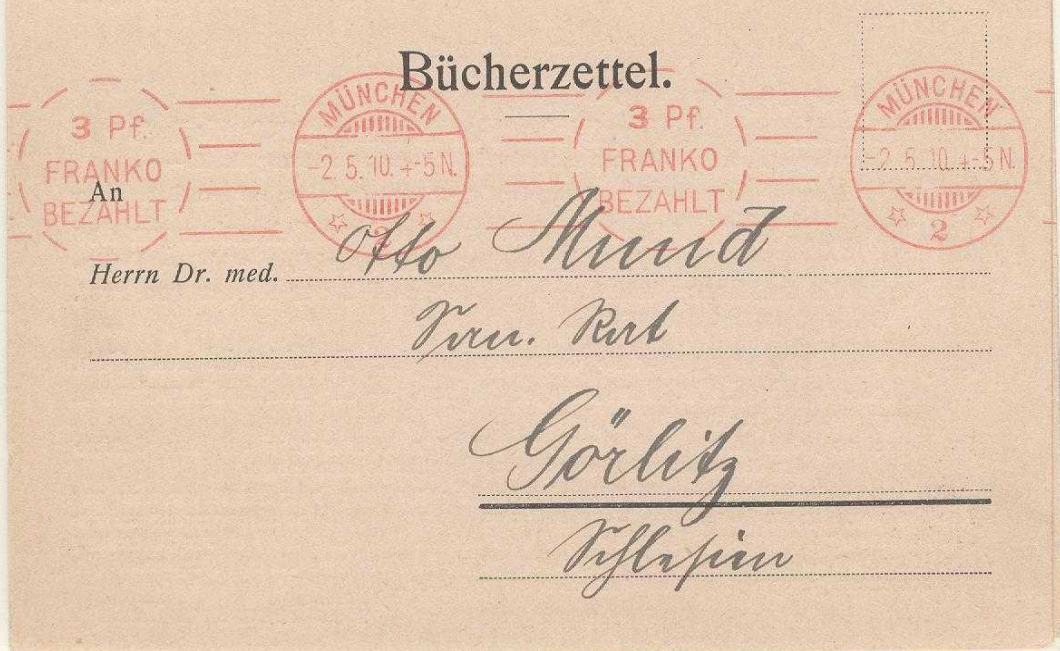 Bücherzettel.
3 Pf.
FRANKO
BEZAHLT
MÜNCHEN
-2.5.10.4-5N.
2
3 Pf.
FRANKO
BEZAHLT
MÜNCHEN
-2.5.10.4-5N.
2
An
Herrn Dr. med. Otto Mund
San. Rat
Görlitz
Schlesien